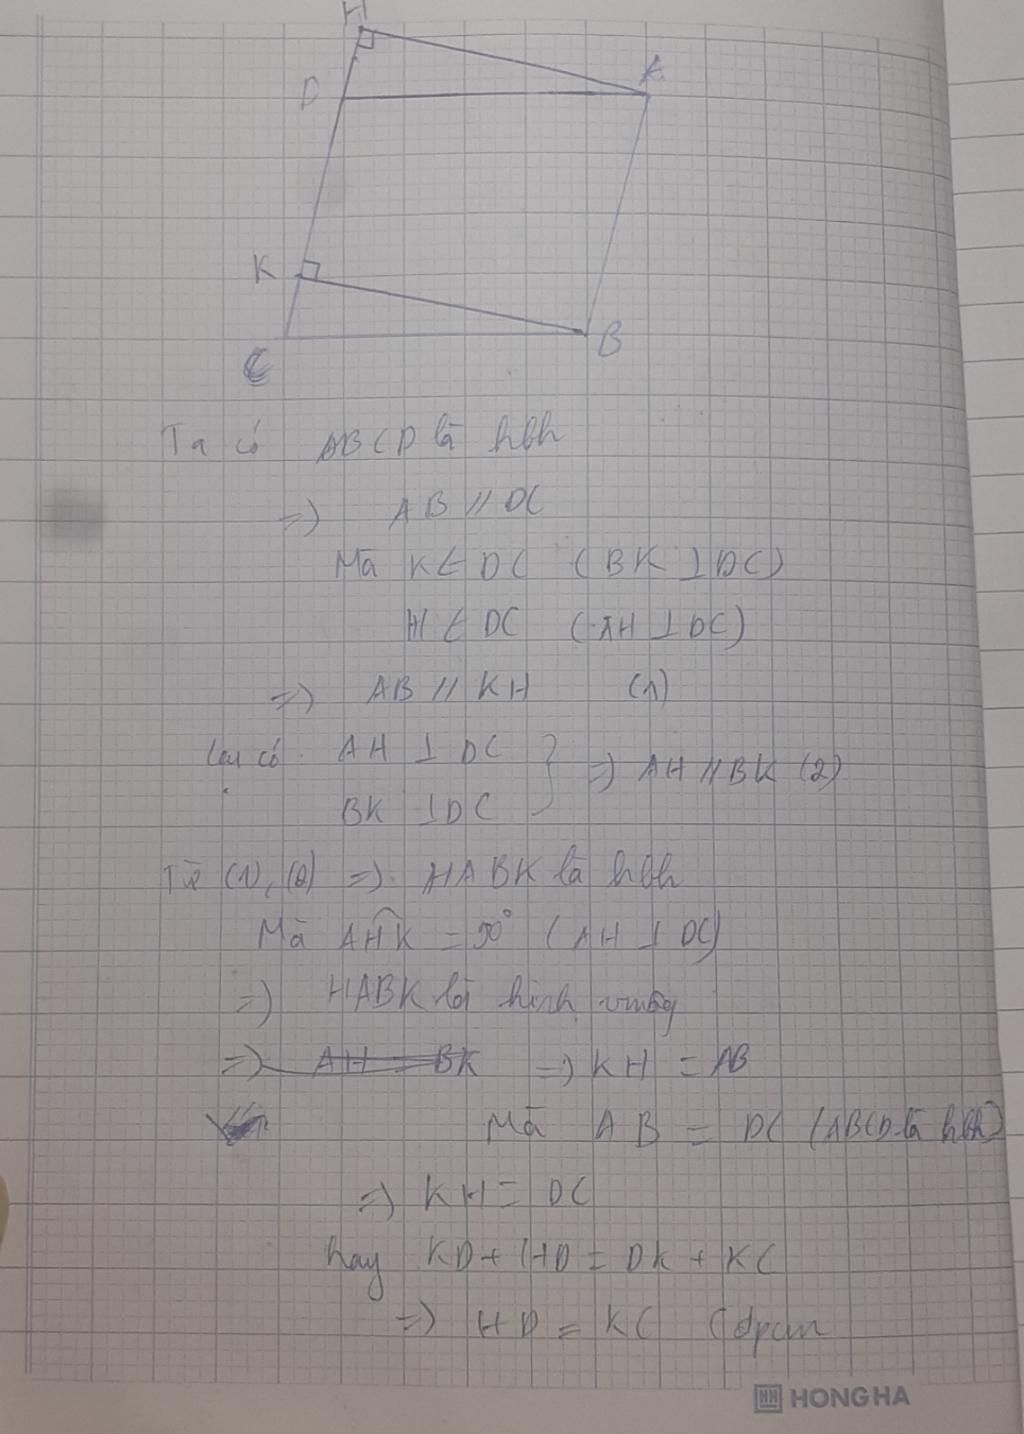 H
D
A
K
C
B
Ta có ABCD là hbh
=) AB // DC
Mà K ∈ DC (BK ⊥ DC)
H ∈ DC (AH ⊥ DC)
=) AB // KH (1)
Lại có AH ⊥ DC
BK ⊥ DC
=) AH // BK (2)
Từ (1), (2) =) HABK là hbh
Mà AĤK = 90° (AH ⊥ DC)
=) HABK là hình vuông
=) AH = BK =) KH = AB
Mà AB = DC (ABCD là hbh)
=) KH = DC
hay KD + HD = DK + KC
=) HD = KC (đpcm
HH HONG HA